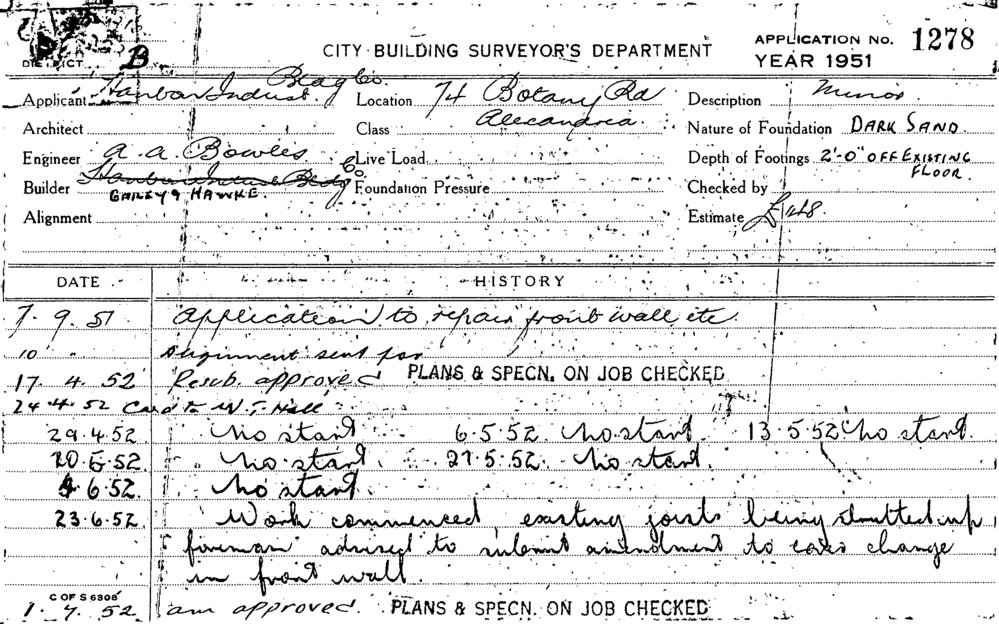 CITY BUILDING SURVEYOR'S DEPARTMENT
APPLICATION No. 1278
YEAR 1951
DISTRICT B
Applicant Indust. Bldg Co.
Location 74 Botany Rd
Alexandria
Description Minor
Architect
Class
Nature of Foundation DARK SAND
Engineer A. A. Bowles
Live Load
Depth of Footings 2'-0" OFF EXISTING
FLOOR.
Builder Indust Bldg Co.
HAWKE.
Foundation Pressure
Checked by
Alignment
Estimate £148
DATE
HISTORY
7.9.51 Application to repair front wall etc
10 " Alignment sent for
17.4.52 Resub. approved PLANS & SPECN. ON JOB CHECKED
24.4.52 Card to W. T. Hall
29.4.52 No start 6.5.52 No start 13.5.52 No start.
20.5.52. No start. 27.5.52. No start.
6.52. No start.
23.6.52 Work commenced, existing joists being shutted up
foreman advised to submit amendment to change
in front wall.
C OF S 6308
1.7.52 am approved. PLANS & SPECN. ON JOB CHECKED